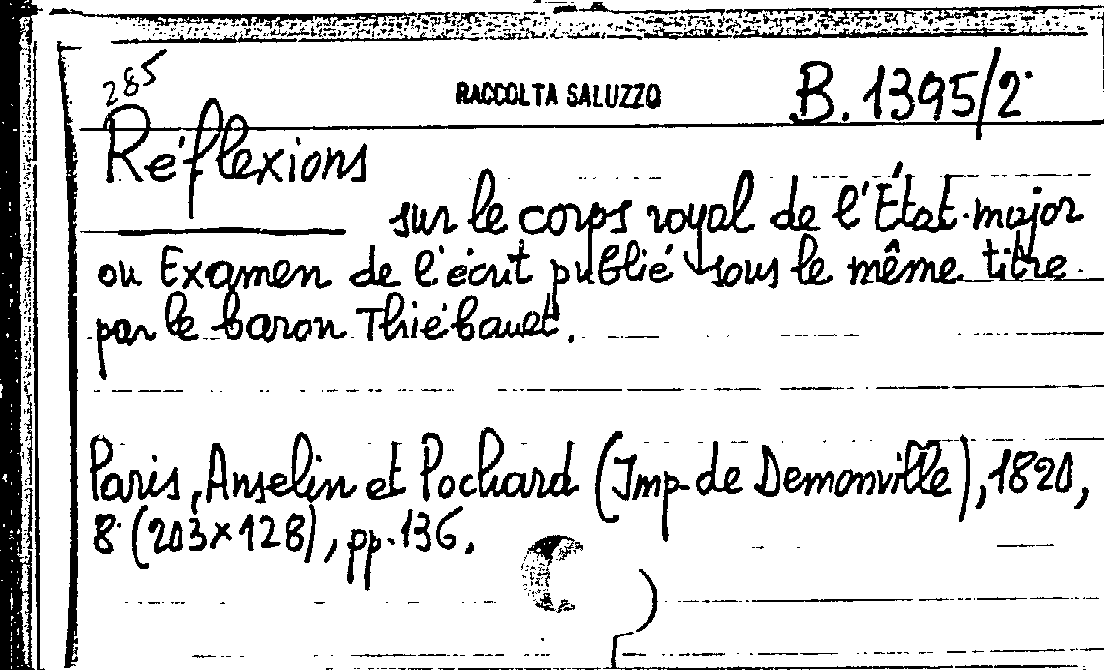 285
RACCOLTA SALUZZO B. 1395/2
Réflexions
sur le corps royal de l'État-major
ou Examen de l'écrit publié sous le même titre
par le baron Thiébault.
Paris, Anselin et Pochard (Imp. de Demonville), 1820,
8° (203×128), pp. 136.